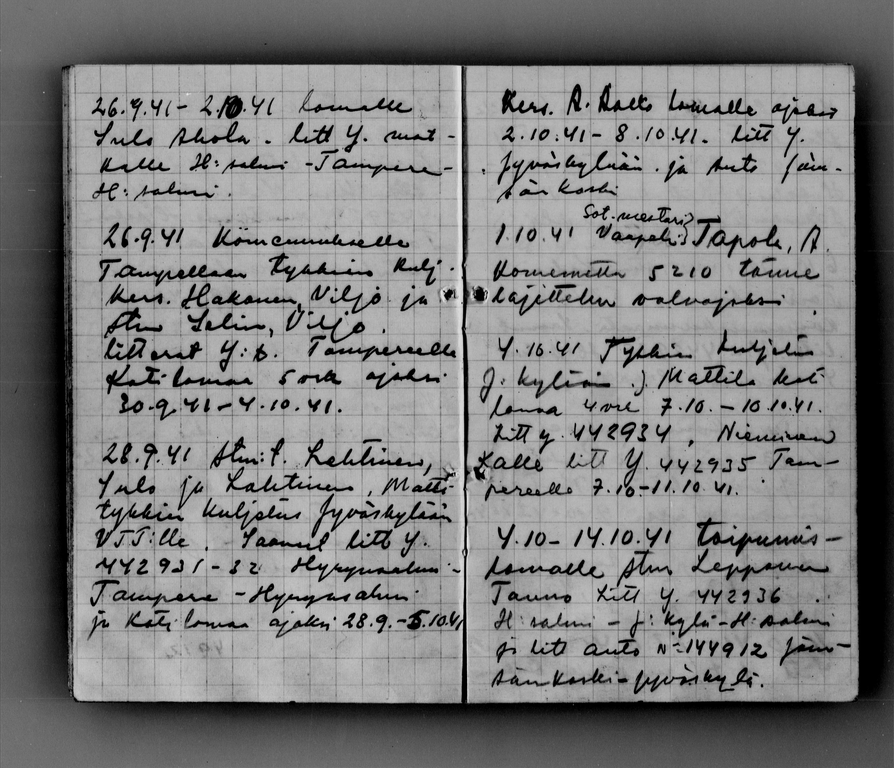 26.9.41 – 2.10.41 lomalle
Sulo Ahola. litt Y. mat-
kalle H:salmi - Tampere -
H:salmi.
26.9.41 Komennukselle
Tampellaan tykkien kulj.
Kers. Hakanen, Viljo ja
stm Salin, Viljo.
litterat Y: Tampereelle
Kotilomaa 5 vrk ajaksi
30.9.41 – 4.10.41.
28.9.41 stm:t. Lehtinen,
Sulo ja Lahtinen, Matti
tykkien kuljetus Jyväskylään
VTT:lle. Saaneet litt Y.
442931-32 Hyrynsalmi -
Tampere - Hyrynsalmi
ja Kotilomaa ajaksi 28.9.-5.10.41
Kers. A. lomalle ajaksi
2.10.41 – 8.10.41. litt Y.
Jyväskylään. ja auto Jäm-
sänkoski
Sot.mestari
1.10.41 Vääpeli Tapola, A.
Komennettu 5210 tänne
lajittelun valvojaksi.
4.10.41 Tykkien kuljetus
J:kylään. Mattila kot
lomaa 4 vrk 7.10. – 10.10.41.
Litt Y. 442934, Nieminen
Kalle litt Y. 442935 Tam-
pereelle 7.10-11.10.41.
4.10 – 14.10.41 toipumis-
lomalle stm Leppänen
Tauno Litt Y. 442936
H:salmi - J:kylä - H:salmi
ja litt auto N:144912 Jäm-
sänkoski - Jyväskylä.